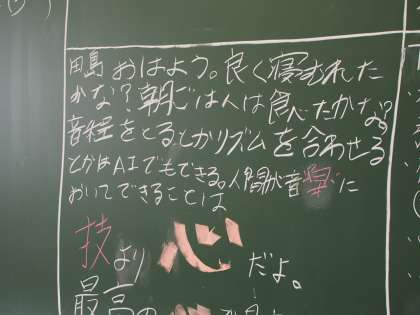 田島 おはよう。良く寝むれた
かな？朝ごはんは食べたかな？
音程をとるとかリズムを合わせる
とかはAIでもできる。人間が音楽に
おいてできることは
技より心だよ。
最高の